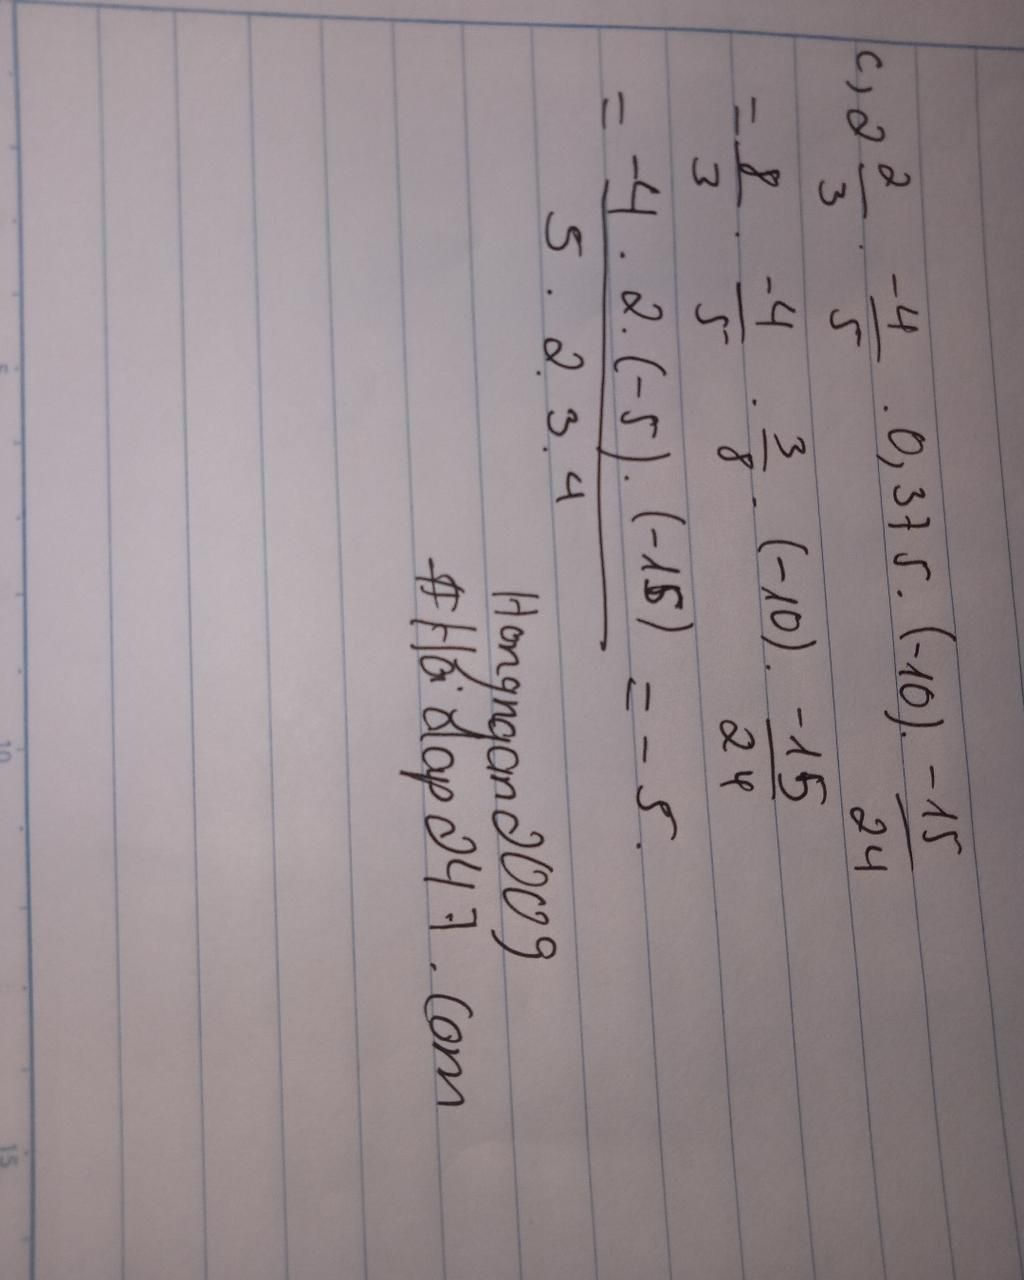 c, 2 2/3 . -4/5 . 0,375 . (-10) . -15/24
= 8/3 . -4/5 . 3/8 . (-10) . -15/24
= -4 . 2 . (-5) . (-15) / 5 . 2 . 3 . 4 = -5.
Hongngan2009
#Hỏi đap 247 . Com
5
10
15